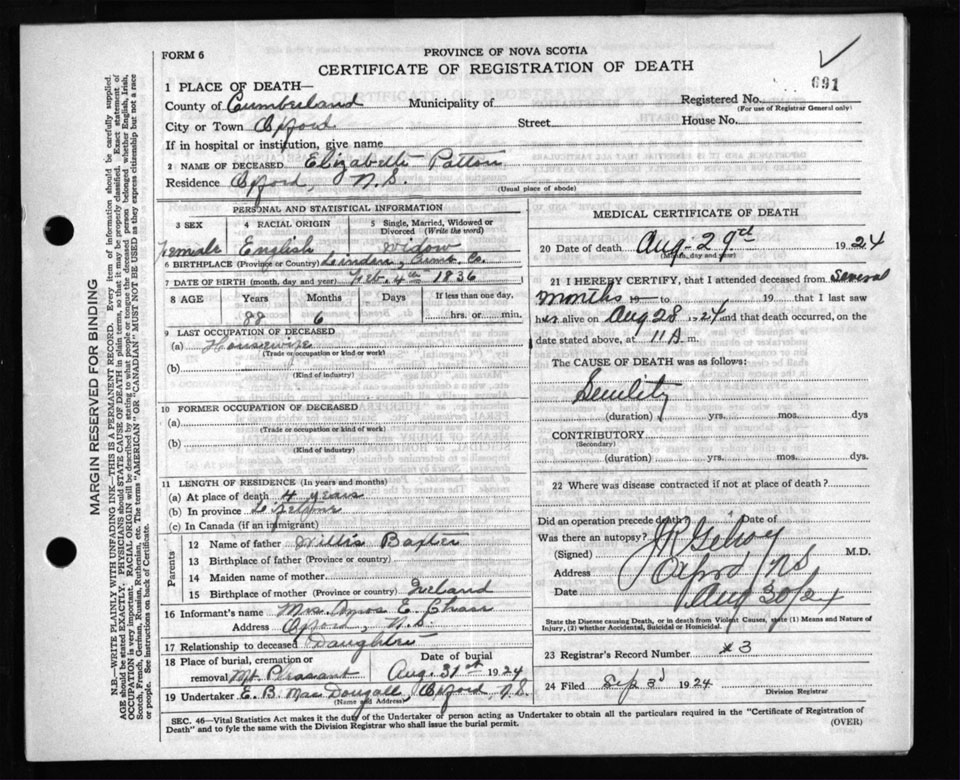 FORM 6
PROVINCE OF NOVA SCOTIA
CERTIFICATE OF REGISTRATION OF DEATH
691
1 PLACE OF DEATH—
County of Cumberland Municipality of Registered No.
(For use of Registrar General only)
City or Town Oxford Street House No.
If in hospital or institution, give name
2 NAME OF DECEASED Elizabeth Patton
Residence Oxford, N.S.
(Usual place of abode)
PERSONAL AND STATISTICAL INFORMATION
3 SEX 4 RACIAL ORIGIN 5 Single, Married, Widowed or Divorced (Write the word)
Female English Widow
6 BIRTHPLACE (Province or Country) Linden, Cumb. Co.
7 DATE OF BIRTH (month, day, and year) Feb. 4th 1836
8 AGE Years Months Days If less than one day,
88 6 hrs. or min.
9 LAST OCCUPATION OF DECEASED
(a) Housewife
(Trade or occupation or kind of work)
(b)
(Kind of industry)
10 FORMER OCCUPATION OF DECEASED
(a)
(Trade or occupation or kind of work)
(b)
(Kind of industry)
11 LENGTH OF RESIDENCE (In years and months)
(a) At place of death 4 years
(b) In province Lifetime
(c) In Canada (if an immigrant)
Parents
12 Name of father Willis Baxter
13 Birthplace of father (Province or country)
14 Maiden name of mother
15 Birthplace of mother (Province or country) Ireland
16 Informant's name Mrs. Amos E. Chase
Address Oxford, N.S.
17 Relationship to deceased Daughter
18 Place of burial, cremation or removal Mt. Pleasant Date of burial Aug. 31st 1924
19 Undertaker E. B. MacDougall Oxford N.S.
(Name and Address)
MEDICAL CERTIFICATE OF DEATH
20 Date of death Aug. 29th 1924
(Month, day and year)
21 I HEREBY CERTIFY, that I attended deceased from Several
months 19 to 19 that I last saw
her alive on Aug 28 1924 and that death occurred, on
date stated above, at 11 A. m.
The CAUSE OF DEATH was as follows:
Senility
(duration) yrs. mos. dys
CONTRIBUTORY
(Secondary)
(duration) yrs. mos. dys.
22 Where was disease contracted if not at place of death?
Did an operation precede death? Date of
Was there an autopsy?
(Signed) M.D.
Address Oxford NS
Date Aug 30/24
State the Disease causing Death, or in death from Violent Causes, state (1) Means and Nature of
Injury, (2) whether Accidental, Suicidal or Homicidal.
23 Registrar's Record Number *3
24 Filed Sep 3d 1924
Division Registrar
SEC. 46—Vital Statistics Act makes it the duty of the Undertaker or person acting as Undertaker to obtain all the particulars required in the "Certificate of Registration of
Death" and to fyle the same with the Division Registrar who shall issue the burial permit.
(OVER)
MARGIN RESERVED FOR BINDING
N.B.—WRITE PLAINLY WITH UNFADING INK—THIS IS A PERMANENT RECORD. Every item of information should be carefully supplied.
AGE should be stated EXACTLY. PHYSICIANS should STATE CAUSE OF DEATH in plain terms, so that it may be properly classified. Exact statement of
OCCUPATION is very important. RACIAL ORIGIN will be described by stating to what people or tongue the deceased person belonged whether English, Irish,
Scotch, French, German, Russian, Ruthenian, etc. The terms "AMERICAN" or "CANADIAN" MUST NOT BE USED as they express citizenship but not a race
or people. See instructions on back of Certificate.